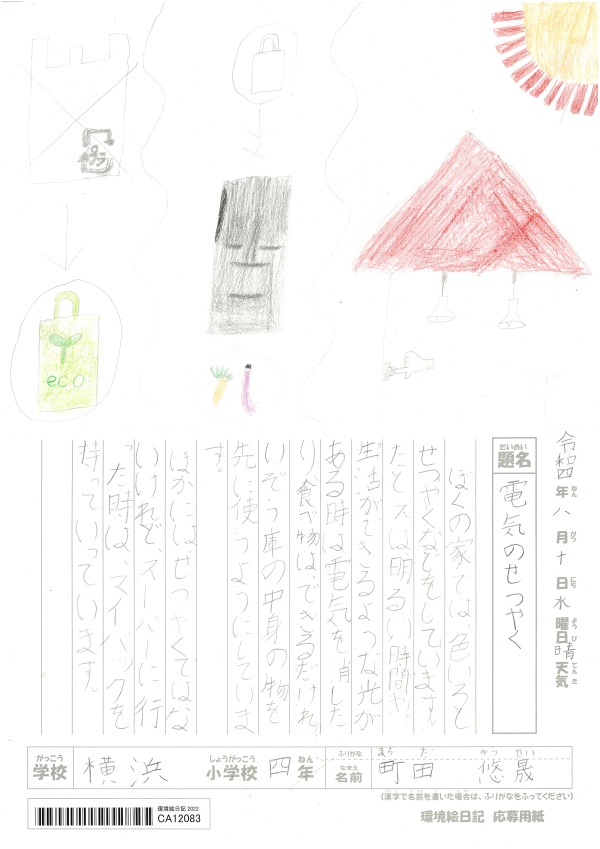 プラ
eco
令和四年八月十日水曜日晴天気
ねん がつ にち ようび てんき
だいめい
題名
電気のせつやく
ぼくの家では、色いろと
せつやくなどをしています。
たとえば、明るい時間や、
生活ができるような光が
ある時は電気を消した
り、食べ物は、できるだけれ
いぞう庫の中身の物を
先に使うようにしていま
す。
ほかには、せつやくではな
いけれど、スーパーに行
った時は、マイバックを
持っていっています。
がっこう しょうがっこう ねん ふりがな まち だ ゆう せい
学校 横浜 小学校 四年 なまえ 名前 町田 悠晟
(漢字で名前を書いた場合は、ふりがなをふってください)
環境絵日記 2022
CA12083
環境絵日記 応募用紙